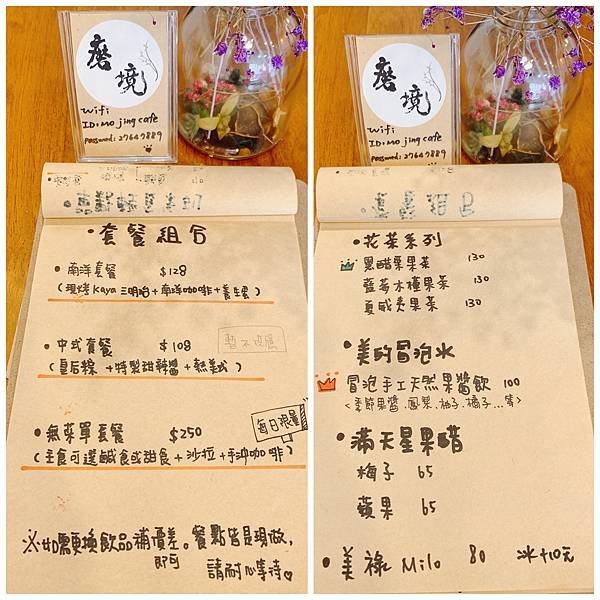 磨境
wifi
ID:mo jing cafe
password: 27649889
•套餐組合
•南洋套餐 $128
(現烤Kaya三明治+南洋咖啡+養生蛋)
•中式套餐 $108
暫不供應
(皇后粽+特製甜辣醬+熱美式)
每日限量
•無菜單套餐 $250
(主食可選鹹食或甜食+沙拉+手沖咖啡)
※如需更換飲品補價差即可。餐點皆是現做,
請耐心等待♡
磨境
wifi
ID:mo jing cafe
password: 27649889
•花茶系列
黑醋栗果茶 130
藍莓木槿果茶 130
夏威夷果茶 130
•美的冒泡水
冒泡手工天然果醬飲 100
<季節果醬、鳳梨、柚子、橘子...等>
•滿天星果醋
梅子 65
蘋果 65
•美祿 Milo 80 冰+10元